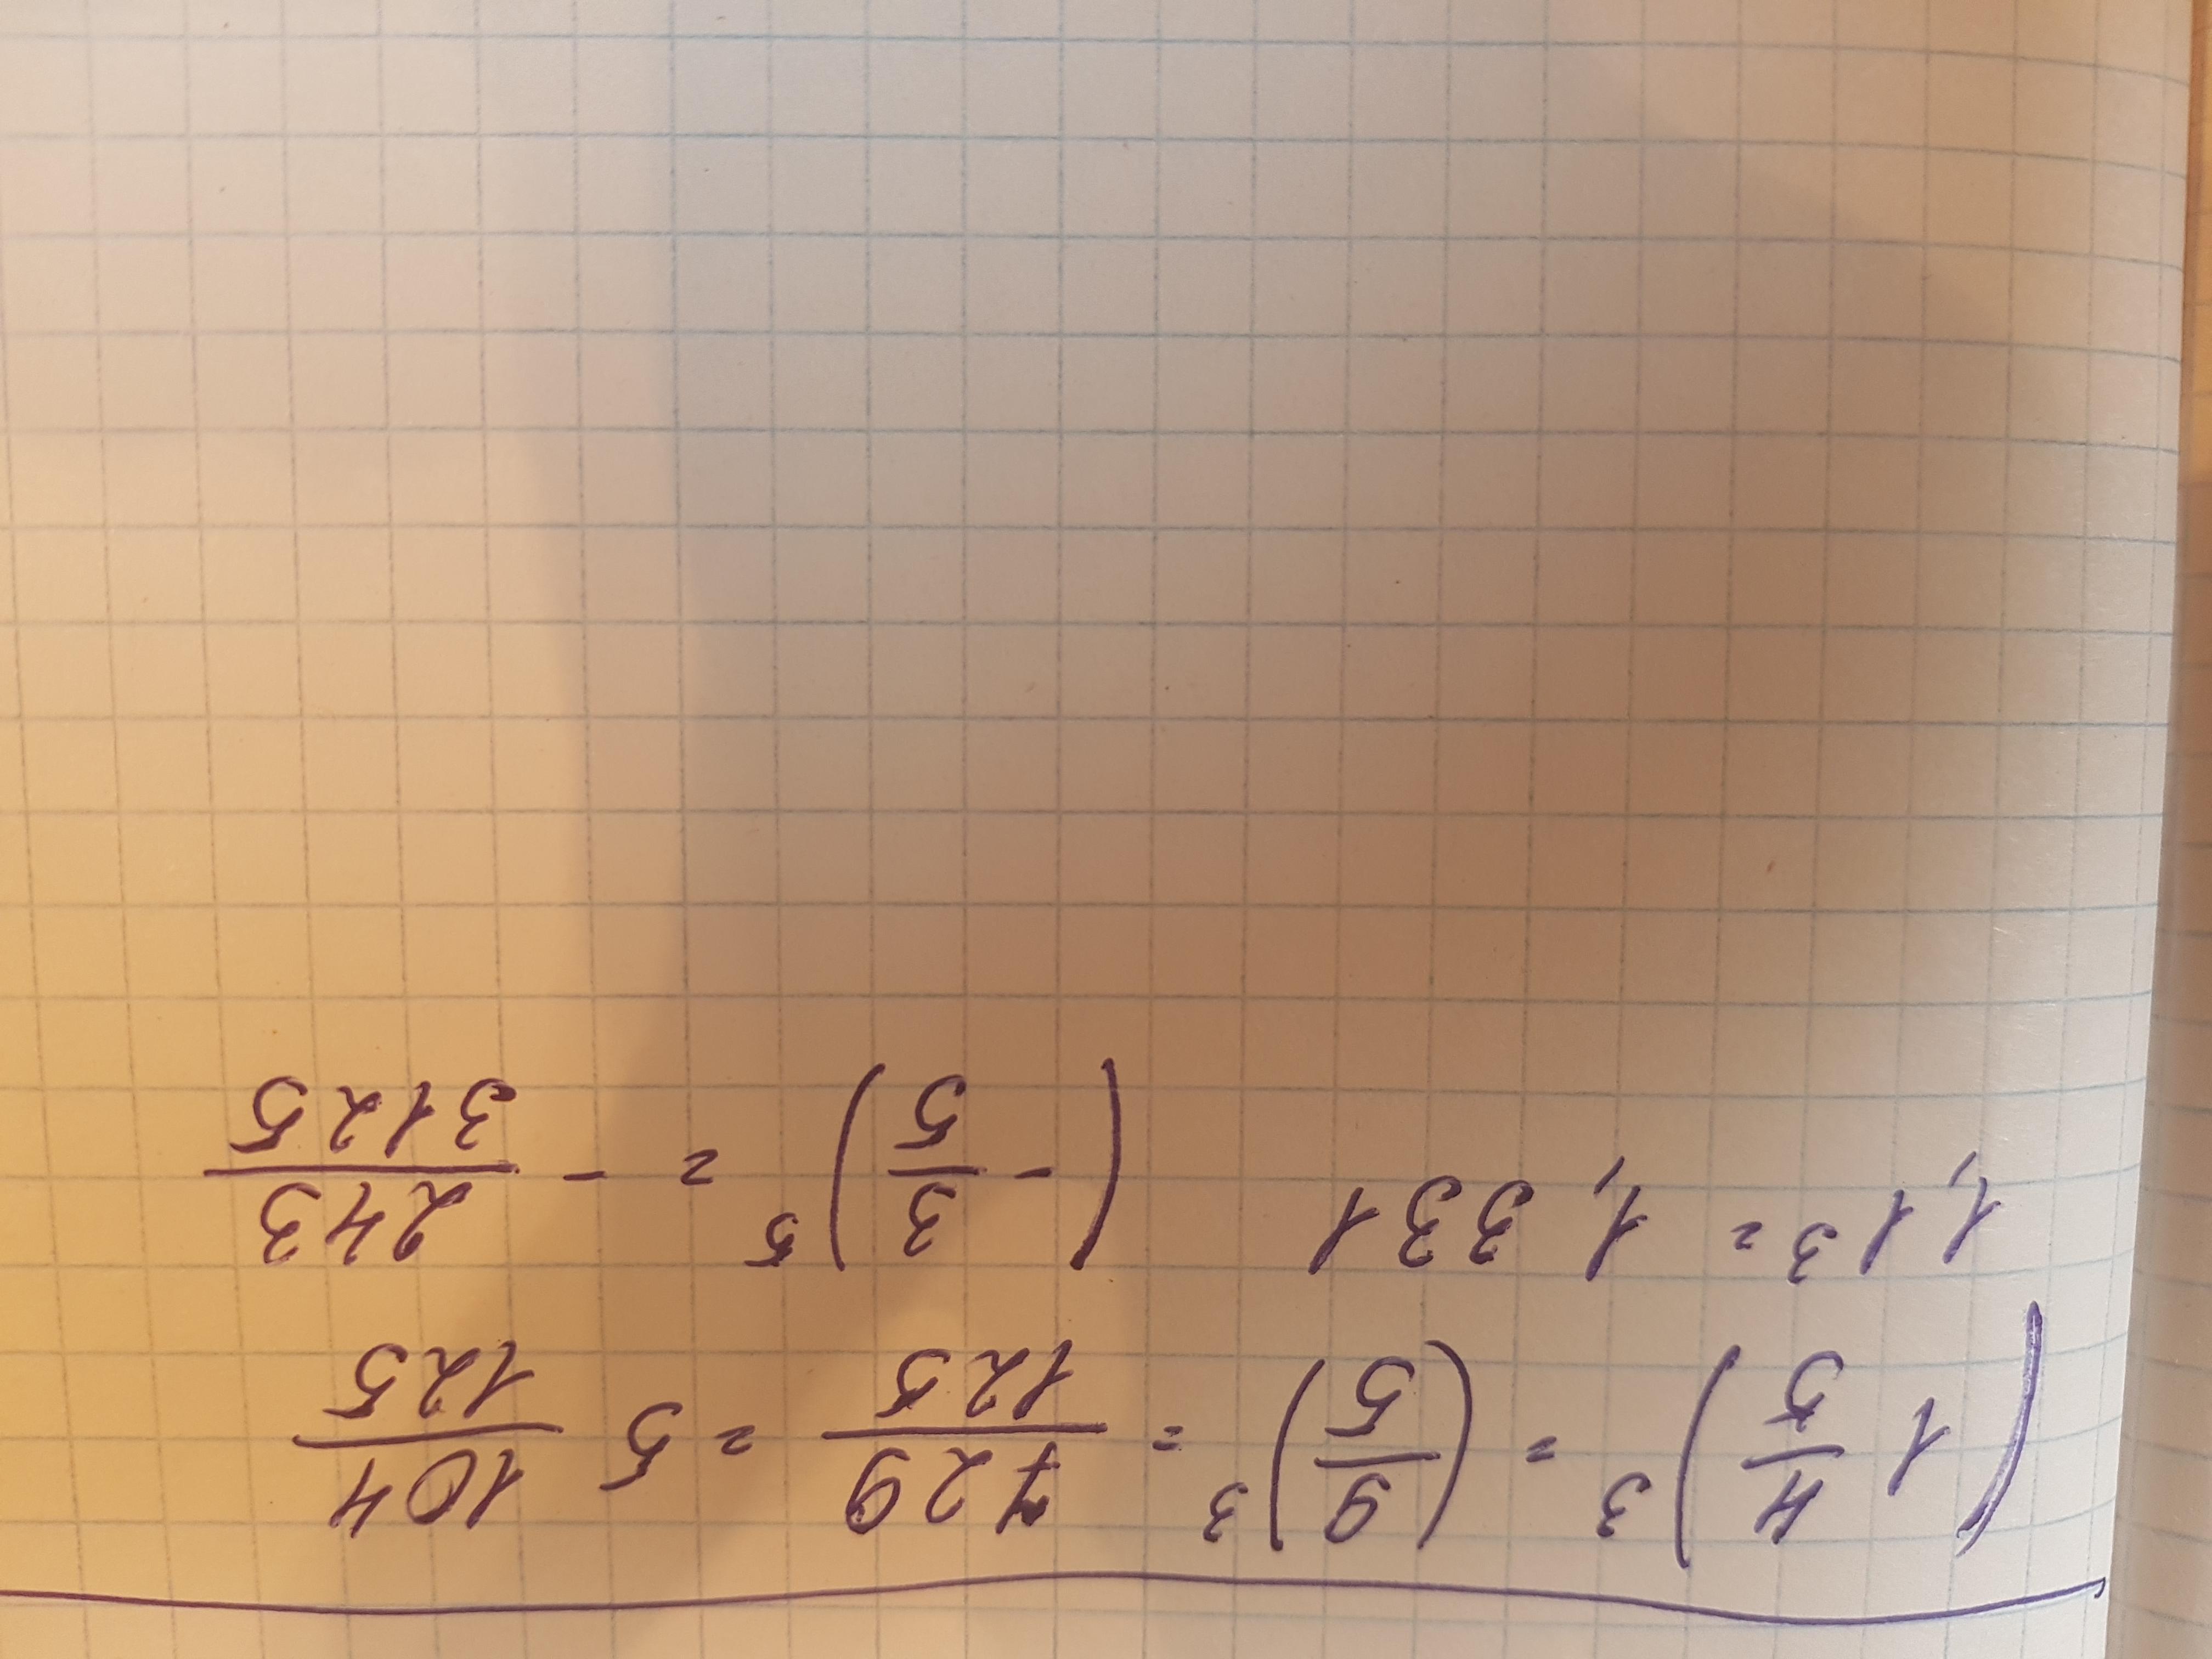 (1 4/5)³ = (9/5)³ = 729/125 = 5 104/125
1,1³ = 1,331 (- 3/5)⁵ = - 243/3125